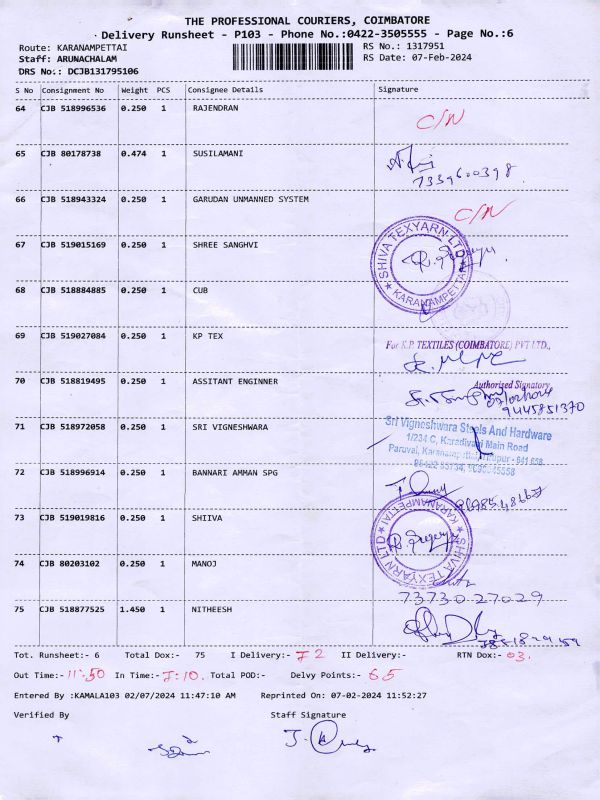 THE PROFESSIONAL COURIERS, COIMBATORE
Delivery Runsheet - P103 - Phone No.:0422-3505555 - Page No.:6
Route: KARANAMPETTAI RS No.: 1317951
Staff: ARUNACHALAM RS Date: 07-Feb-2024
DRS No.: DCJB131795106
S No Consignment No Weight PCS Consignee Details Signature
64 CJB 518996536 0.250 1 RAJENDRAN C/N
65 CJB 80178738 0.474 1 SUSILAMANI
7339600398
66 CJB 518943324 0.250 1 GARUDAN UNMANNED SYSTEM C/N
67 CJB 519015169 0.250 1 SHREE SANGHVI
SHIVA TEXYARN LTD
KARANAMPETTAI
68 CJB 518884885 0.250 1 CUB
69 CJB 519027084 0.250 1 KP TEX
For K.P. TEXTILES (COIMBATORE) PVT LTD.,
70 CJB 518819495 0.250 1 ASSITANT ENGINNER Authorised Signatory
9445851370
71 CJB 518972058 0.250 1 SRI VIGNESHWARA
Sri Vigneshwara Steels And Hardware
1/234 C, Karadivavi Main Road
Paruvai, Karanampettai, Tirupur - 641 658.
72 CJB 518996914 0.250 1 BANNARI AMMAN SPG
73 CJB 519019816 0.250 1 SHIIVA
SHIVA TEXYARN LTD
KARANAMPETTAI
74 CJB 80203102 0.250 1 MANOJ
73730-27029
75 CJB 518877525 1.450 1 NITHEESH
Tot. Runsheet:- 6 Total Dox:- 75 I Delivery:- 72 II Delivery:- RTN Dox:- 03.
Out Time:- 11.50 In Time:- 7.10. Total POD:- Delvy Points:- 65
Entered By :KAMALA103 02/07/2024 11:47:10 AM Reprinted On: 07-02-2024 11:52:27
Verified By Staff Signature